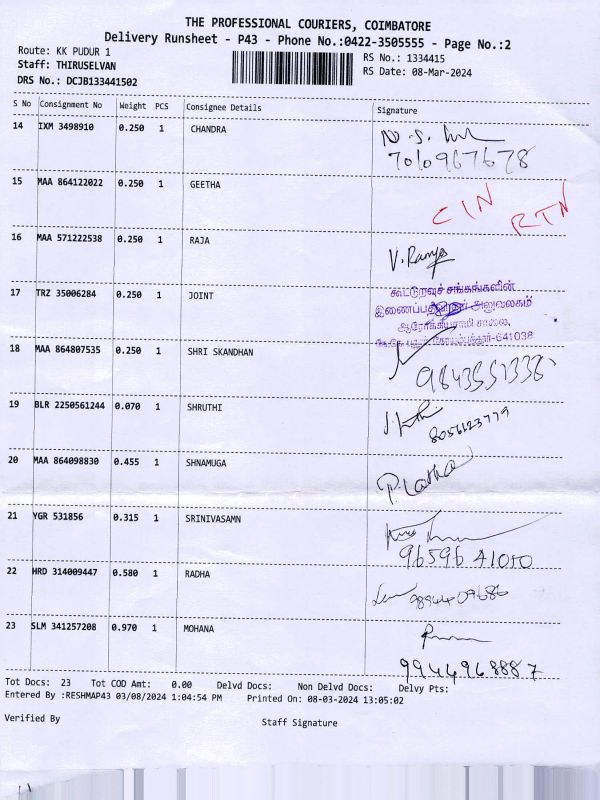 THE PROFESSIONAL COURIERS, COIMBATORE
Delivery Runsheet - P43 - Phone No.:0422-3505555 - Page No.:2
Route: KK PUDUR 1
RS No.: 1334415
Staff: THIRUSELVAN
RS Date: 08-Mar-2024
DRS No.: DCJB133441502
S No Consignment No Weight PCS Consignee Details Signature
14 IXM 3498910 0.250 1 CHANDRA
7010967678
15 MAA 864122022 0.250 1 GEETHA
CIN RTN
16 MAA 571222538 0.250 1 RAJA
V. Ramya
17 TRZ 35006284 0.250 1 JOINT
கூட்டுறவுச் சங்கங்களின்
சாலை,
-641038
18 MAA 864807535 0.250 1 SHRI SKANDHAN
19 BLR 2250561244 0.070 1 SHRUTHI
8056123779
20 MAA 864098830 0.455 1 SHNAMUGA
P. Latha
21 YGR 531856 0.315 1 SRINIVASAMN
96596 41010
22 HRD 314009447 0.580 1 RADHA
9894409686
23 SLM 341257208 0.970 1 MOHANA
9944968887
Tot Docs: 23 Tot COD Amt: 0.00 Delvd Docs: Non Delvd Docs: Delvy Pts:
Entered By :RESHMAP43 03/08/2024 1:04:54 PM Printed On: 08-03-2024 13:05:02
Verified By Staff Signature